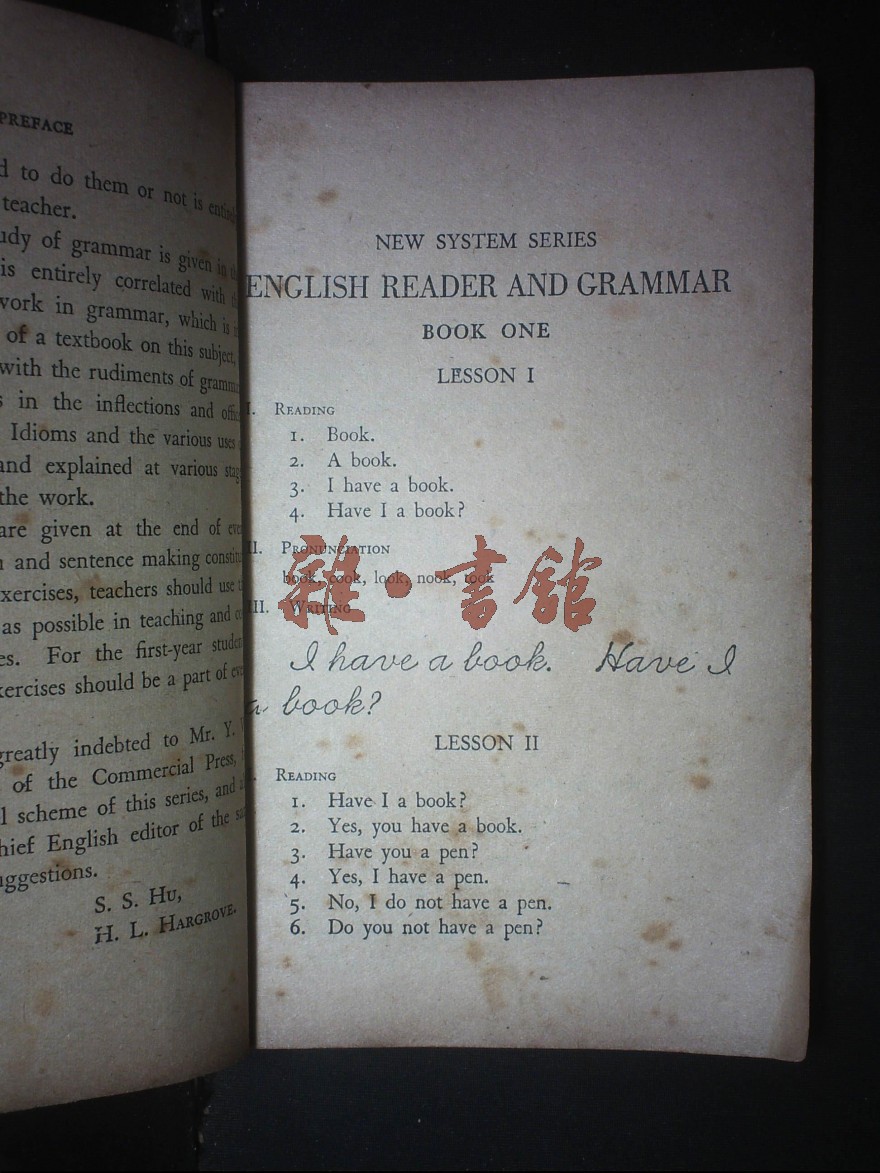 PREFACE
to do them or not is
teacher.
of grammar is given in
is entirely correlated with
work in grammar, which is
of a textbook on this subject,
with the rudiments of
in the inflections and
Idioms and the various uses
and explained at various
the work.
are given at the end of
and sentence making
exercises, teachers should use
as possible in teaching and
For the first-year
exercises should be a part of
greatly indebted to Mr. Y.
of the Commercial Press,
scheme of this series, and
English editor of the
suggestions.
S. S. HU,
H. L. HARGROVE.
NEW SYSTEM SERIES
ENGLISH READER AND GRAMMAR
BOOK ONE
LESSON I
I. READING
1. Book.
2. A book.
3. I have a book.
4. Have I a book?
II. PRONUNCIATION
book, cook, look, nook, took
III. WRITING
雜·書館
I have a book. Have I
a book?
LESSON II
READING
1. Have I a book?
2. Yes, you have a book.
3. Have you a pen?
4. Yes, I have a pen.
5. No, I do not have a pen.
6. Do you not have a pen?